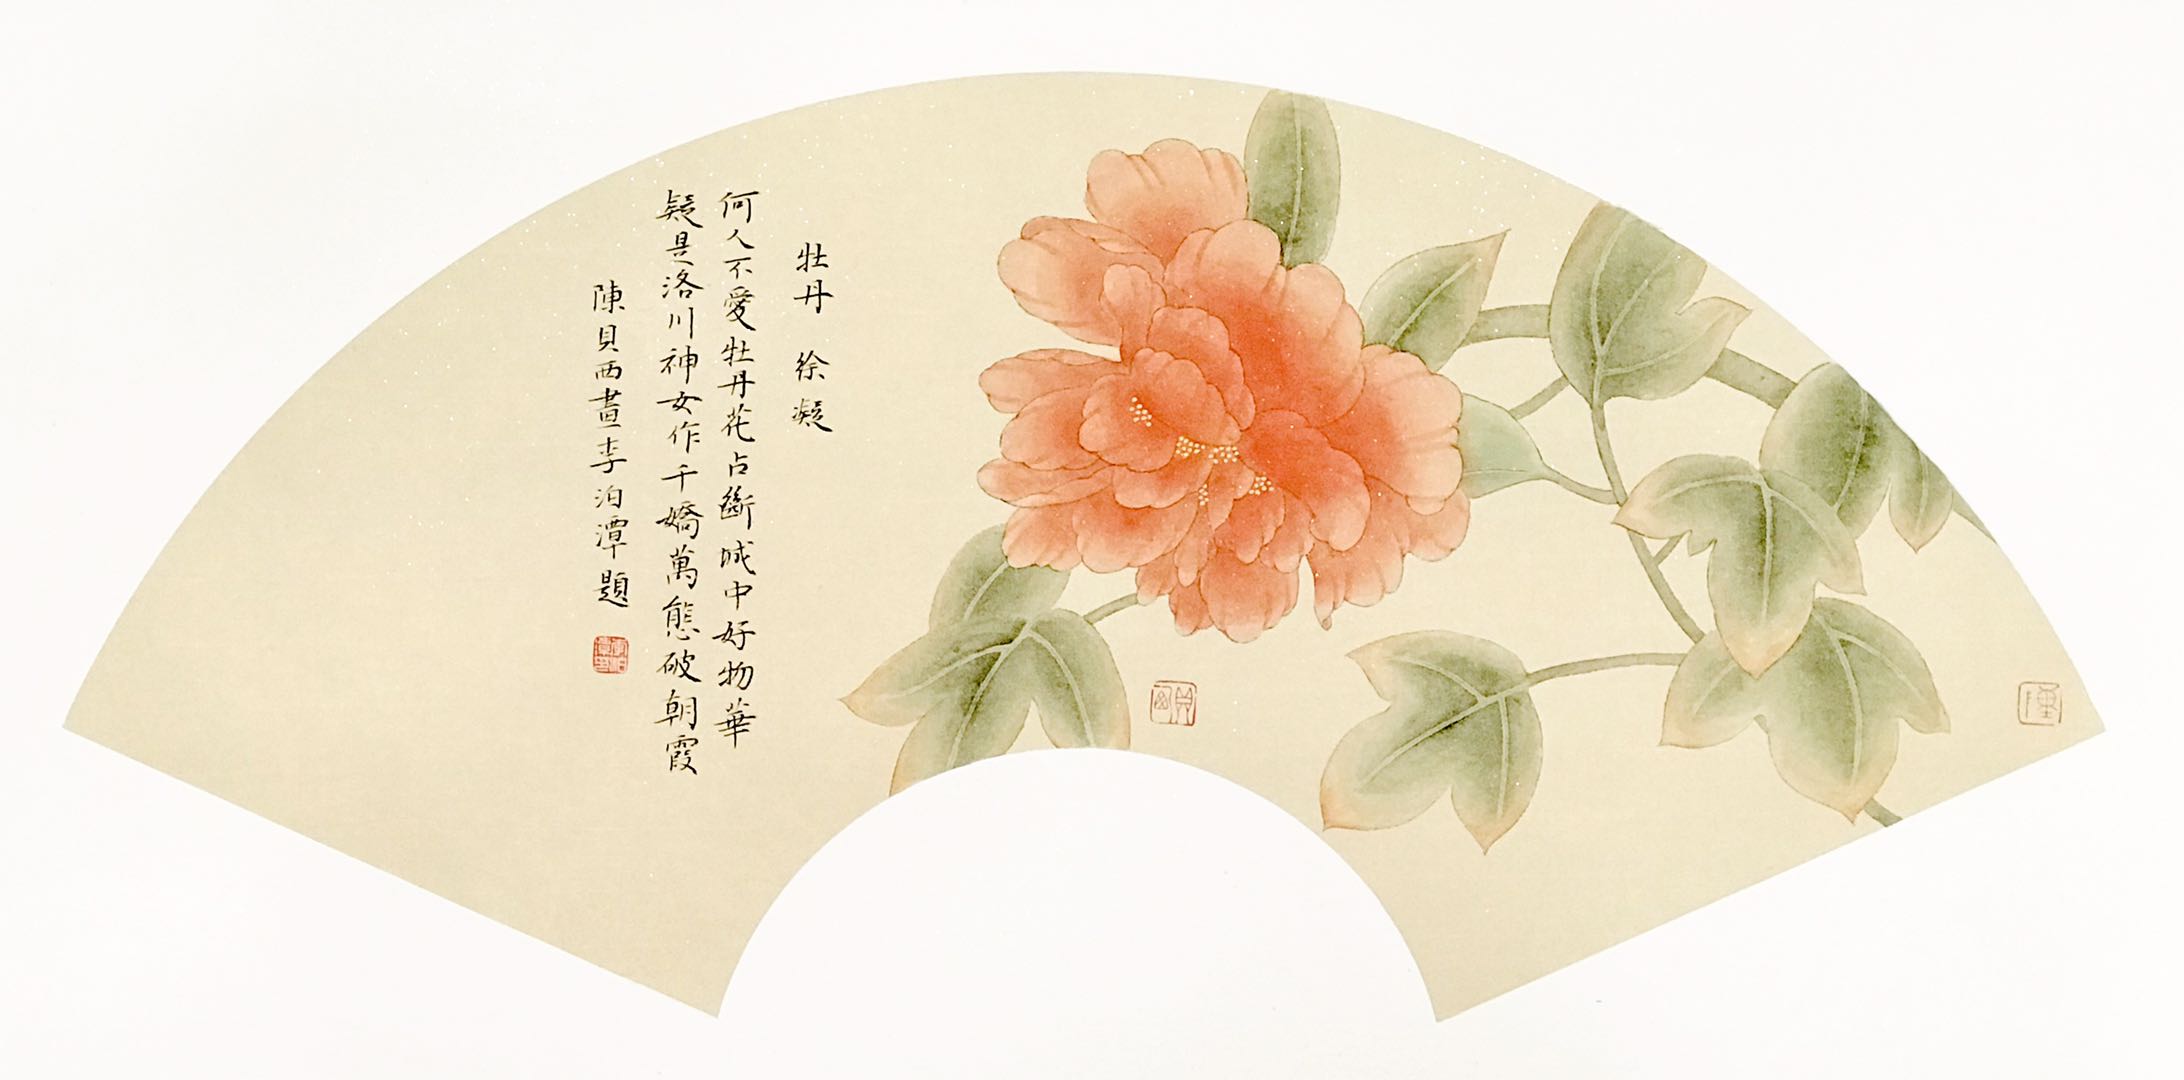 牡丹 徐凝
何人不愛牡丹花占斷城中好物華
疑是洛川神女作千嬌萬態破朝霞
陳貝西畫李泊潭題
陳
貝西